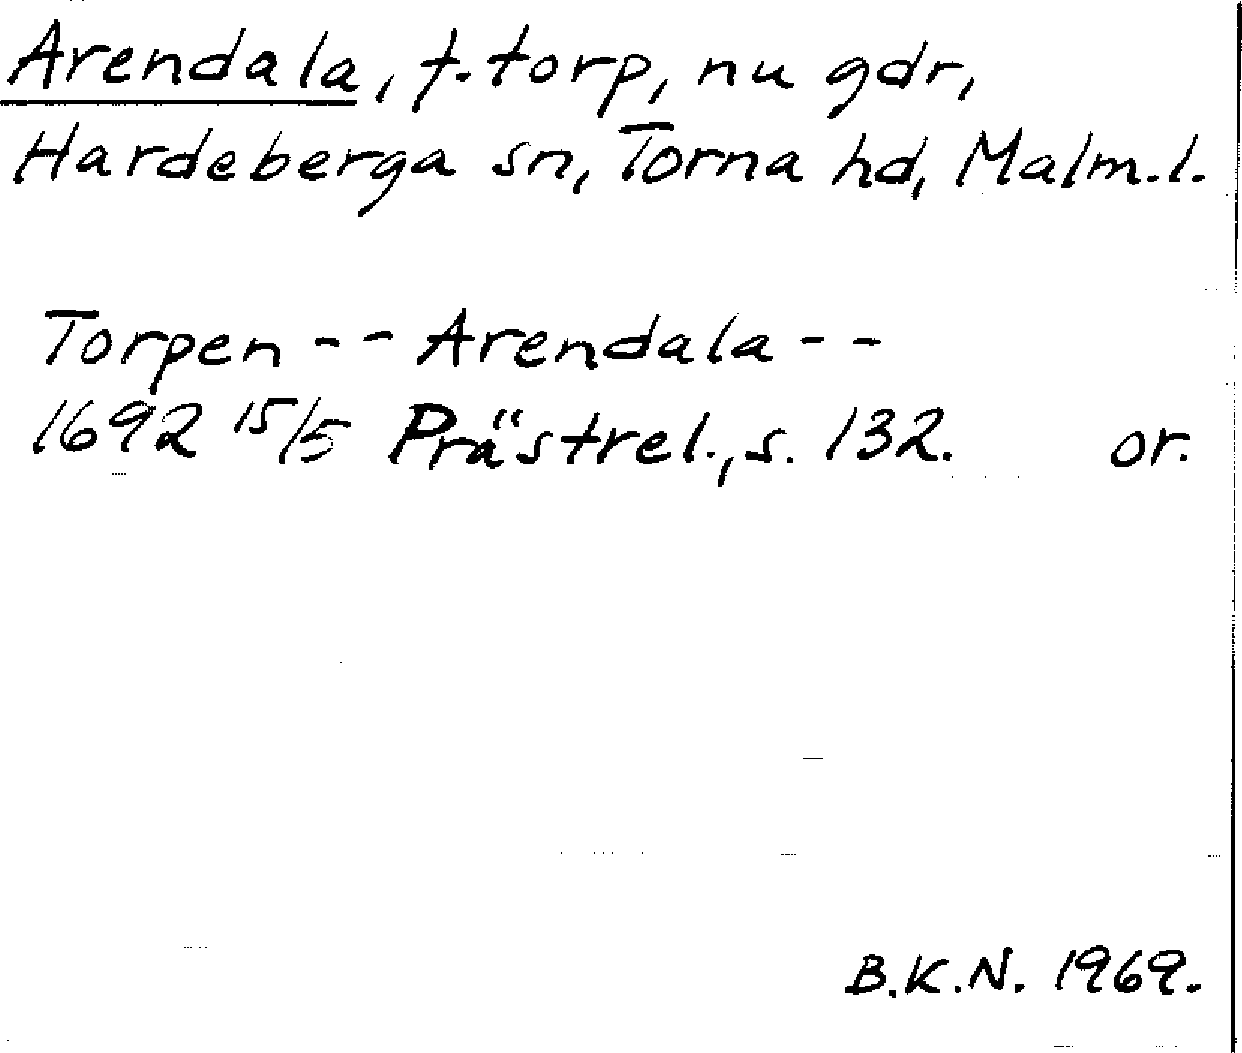 Arendala, f. torp, nu gdr,
Hardeberga sn, Torna hd, Malm.l.
Torpen - - Arendala - -
1692 15/5 Prästrel., s. 132. or.
B.K.N. 1969.